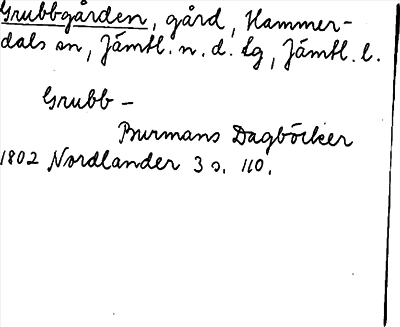 Grubbgården, gård, Hammer-
dals sn, Jämtl. n. d. lg, Jämtl. l.
Grubb -
Burmans Dagböcker
1802 Nordlander 3 s. 110.